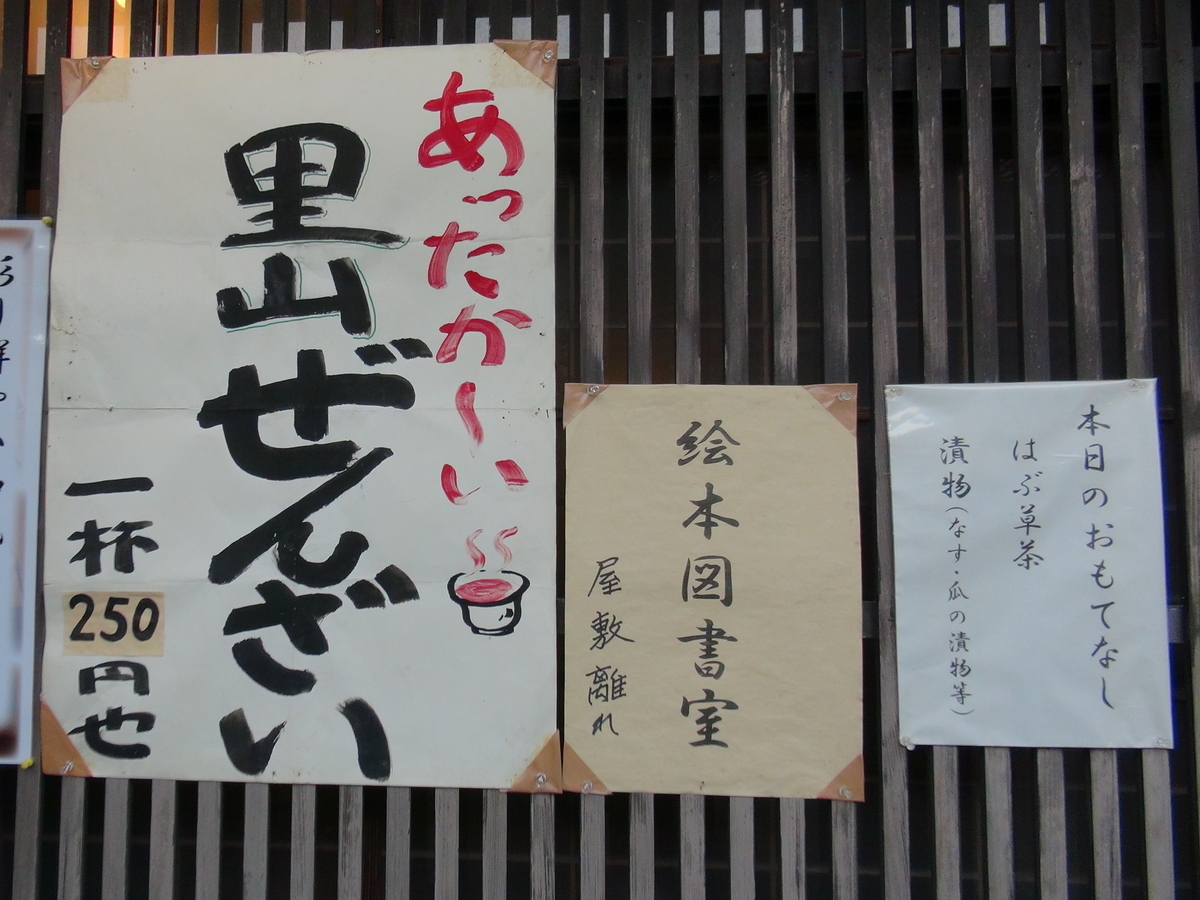 あったかーい
里山ぜんざい
一杯250円也
絵本図書室
屋敷離れ
本日のおもてなし
はぶ草茶
漬物(なす・瓜の漬物等)